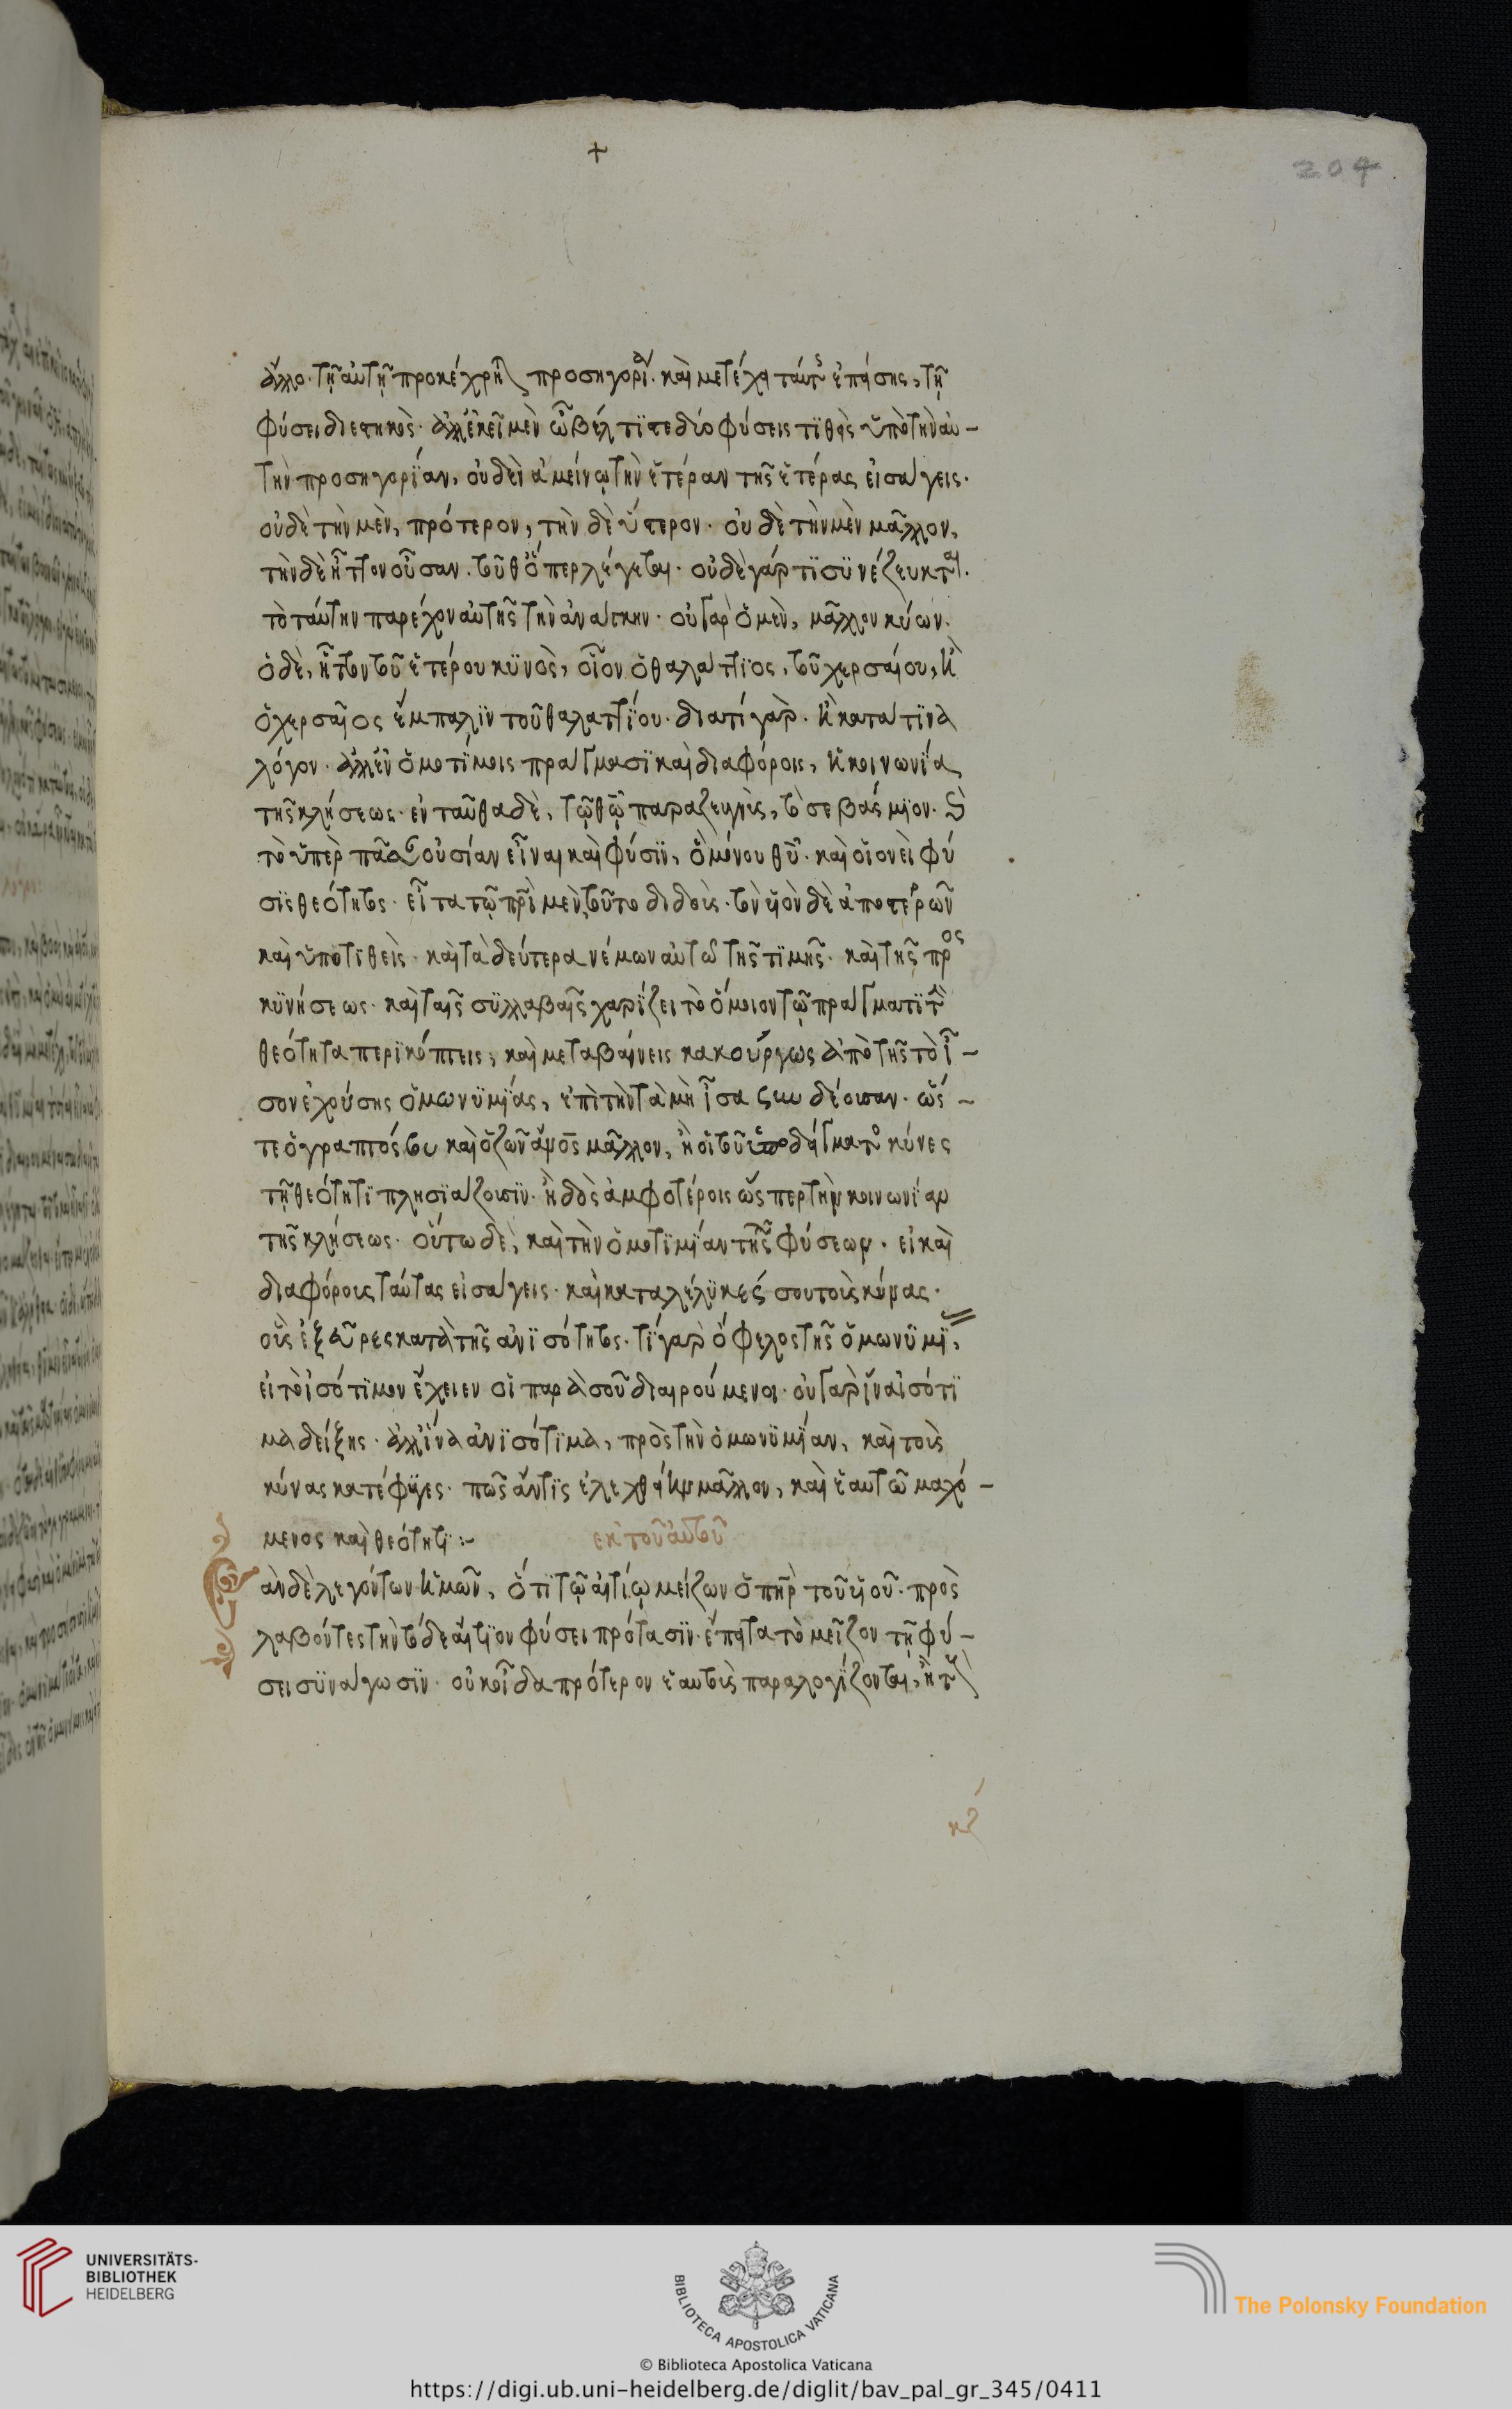 204
ἄλλο· τῆ αὐτῆ προκέχρηται προσηγορία· καὶ μετέχει ταύτης ἐπίσης, τῆ
φύσει διεστηκὸς· ἀλλ' ἐκεῖ μὲν ὦ βέλτϊστε δύο φύσεις τϊθεὶς ὑπὸ τὴν αὐ-
τὴν προσηγορίαν, οὐδὲν ἀμείνω τὴν ἑτέραν τῆς ἑτέρας εἰσάγεις·
οὐδὲ τὴν μὲν, πρότερον, τὴν δὲ ὕστερον· οὐδὲ τὴν μὲν μᾶλλον,
τὴν δὲ ἧττον οὖσαν. τοῦθ' ὅπερ λέγεται· οὐδὲ γάρ τϊ συνέζευκται.
τὸ ταύτην παρέχον αὐτῆς τὴν ἀνάγκην· οὐ γὰρ ὁ μὲν, μᾶλλον κύων.
ὁ δὲ, ἧττον τοῦ ἑτέρου κϋνὸς, οἷον ὁ θαλάττϊος, τοῦ χερσαίου, ἢ
ὁ χερσαῖος ἔμπαλϊν τοῦ θαλαττϊου· διατί γάρ· ἢ κατὰ τϊνὰ
λόγον· ἀλλ' ἐν ὁμοτίμοις πράγμασϊ καὶ διαφόροις, ἡ κοινωνϊα
τῆς κλήσεως· ἐνταῦθα δὲ, τῷ θῷ παραζευγνὺς, τὸ σεβάσμϊον· καὶ
τὸ ὑπὲρ πᾶσαν οὐσίαν εἶναι καὶ φύσϊν, ὃ μόνου θῦ· καὶ οἱονεὶ φύ
σϊς θεότητος· εἶτα τῷ πρὶ μὲν τοῦτο διδοὺς· τὸν ὑϊὸν δὲ ἀποστερῶν
καὶ ὑποτϊθεὶς· καὶ τὰ δεύτερα νέμων αὐτῶ τῆς τϊμῆς· καὶ τῆς προς
κϋνήσεως· κἂν ταῖς συλλαβαῖς χαρίζει τὸ ὅμοιον τῷ πράγματϊ τὴν
θεότητα περϊκόπτεις, καὶ μεταβαίνεις κακούργως ἀπὸ τῆς τὸ ἴ-
σον ἐχούσης ὁμωνυμϊας, ἐπὶ τὴν τὰ μὴ ἴσα συνδέουσαν· ὥσ-
τε ὁ γραπτός σοι καὶ ὁ ζῶν ἄνος μᾶλλον, ἢ οἱ τοῦ ὑποδείγματος κύνες
τῇ θεότητϊ πλησϊάζουσϊν· ἢ δὸς ἀμφοτέροις ὥσπερ τὴν κοινωνϊαν
τῆς κλήσεως· οὕτω δὲ, καὶ τὴν ὁμοτϊμϊαν τῆς φύσεων· εἰ καὶ
διαφόρους ταύτας εἰσάγεις· καὶ καταλέλϋκάς σου τοὺς κύνας·
οὓς ἐξεῦρες κατὰ τῆς ἀνϊσότητος· τϊ γὰρ ὄφελος τῆς ὁμωνϋμϊας,
εἰ τὸ ἰσότϊμον ἔχοιεν οἱ παρὰ σοῦ διαιρούμενοι· οὐ γὰρ ἵνα ἰσότϊ
μα δείξης· ἀλλ' ἵνα ἀνϊσότϊμα, πρὸς τὴν ὁμωνϋμϊαν, καὶ τοὺς
κύνας κατέφυγες· πῶς ἄν τϊς ἐλεχθείη μᾶλλον, καὶ ἑαυτῶ μαχό-
μενος καὶ θεότητϊ :-
ἐκ τοῦ αὐτοῦ
ἂν δὲ λεγόντων ἡμῶν, ὅτϊ τῷ αἰτίῳ μείζων ὁ πηρ τοῦ ὑϊοῦ· προς
λαβόντες τὴν τὸ δὲ αἴτϊον φύσει πρότασϊν· ἔπειτα τὸ μεῖζον τῇ φύ-
σει συνάγωσϊν· οὐκ οἶδα πρότερον ἑαυτοὺς παραλογίζονται, ἢ τοὺς
κζ
UNIVERSITÄTS-
BIBLIOTHEK
HEIDELBERG
BIBLIOTECA APOSTOLICA VATICANA
The Polonsky Foundation
© Biblioteca Apostolica Vaticana
https://digi.ub.uni-heidelberg.de/diglit/bav_pal_gr_345/0411